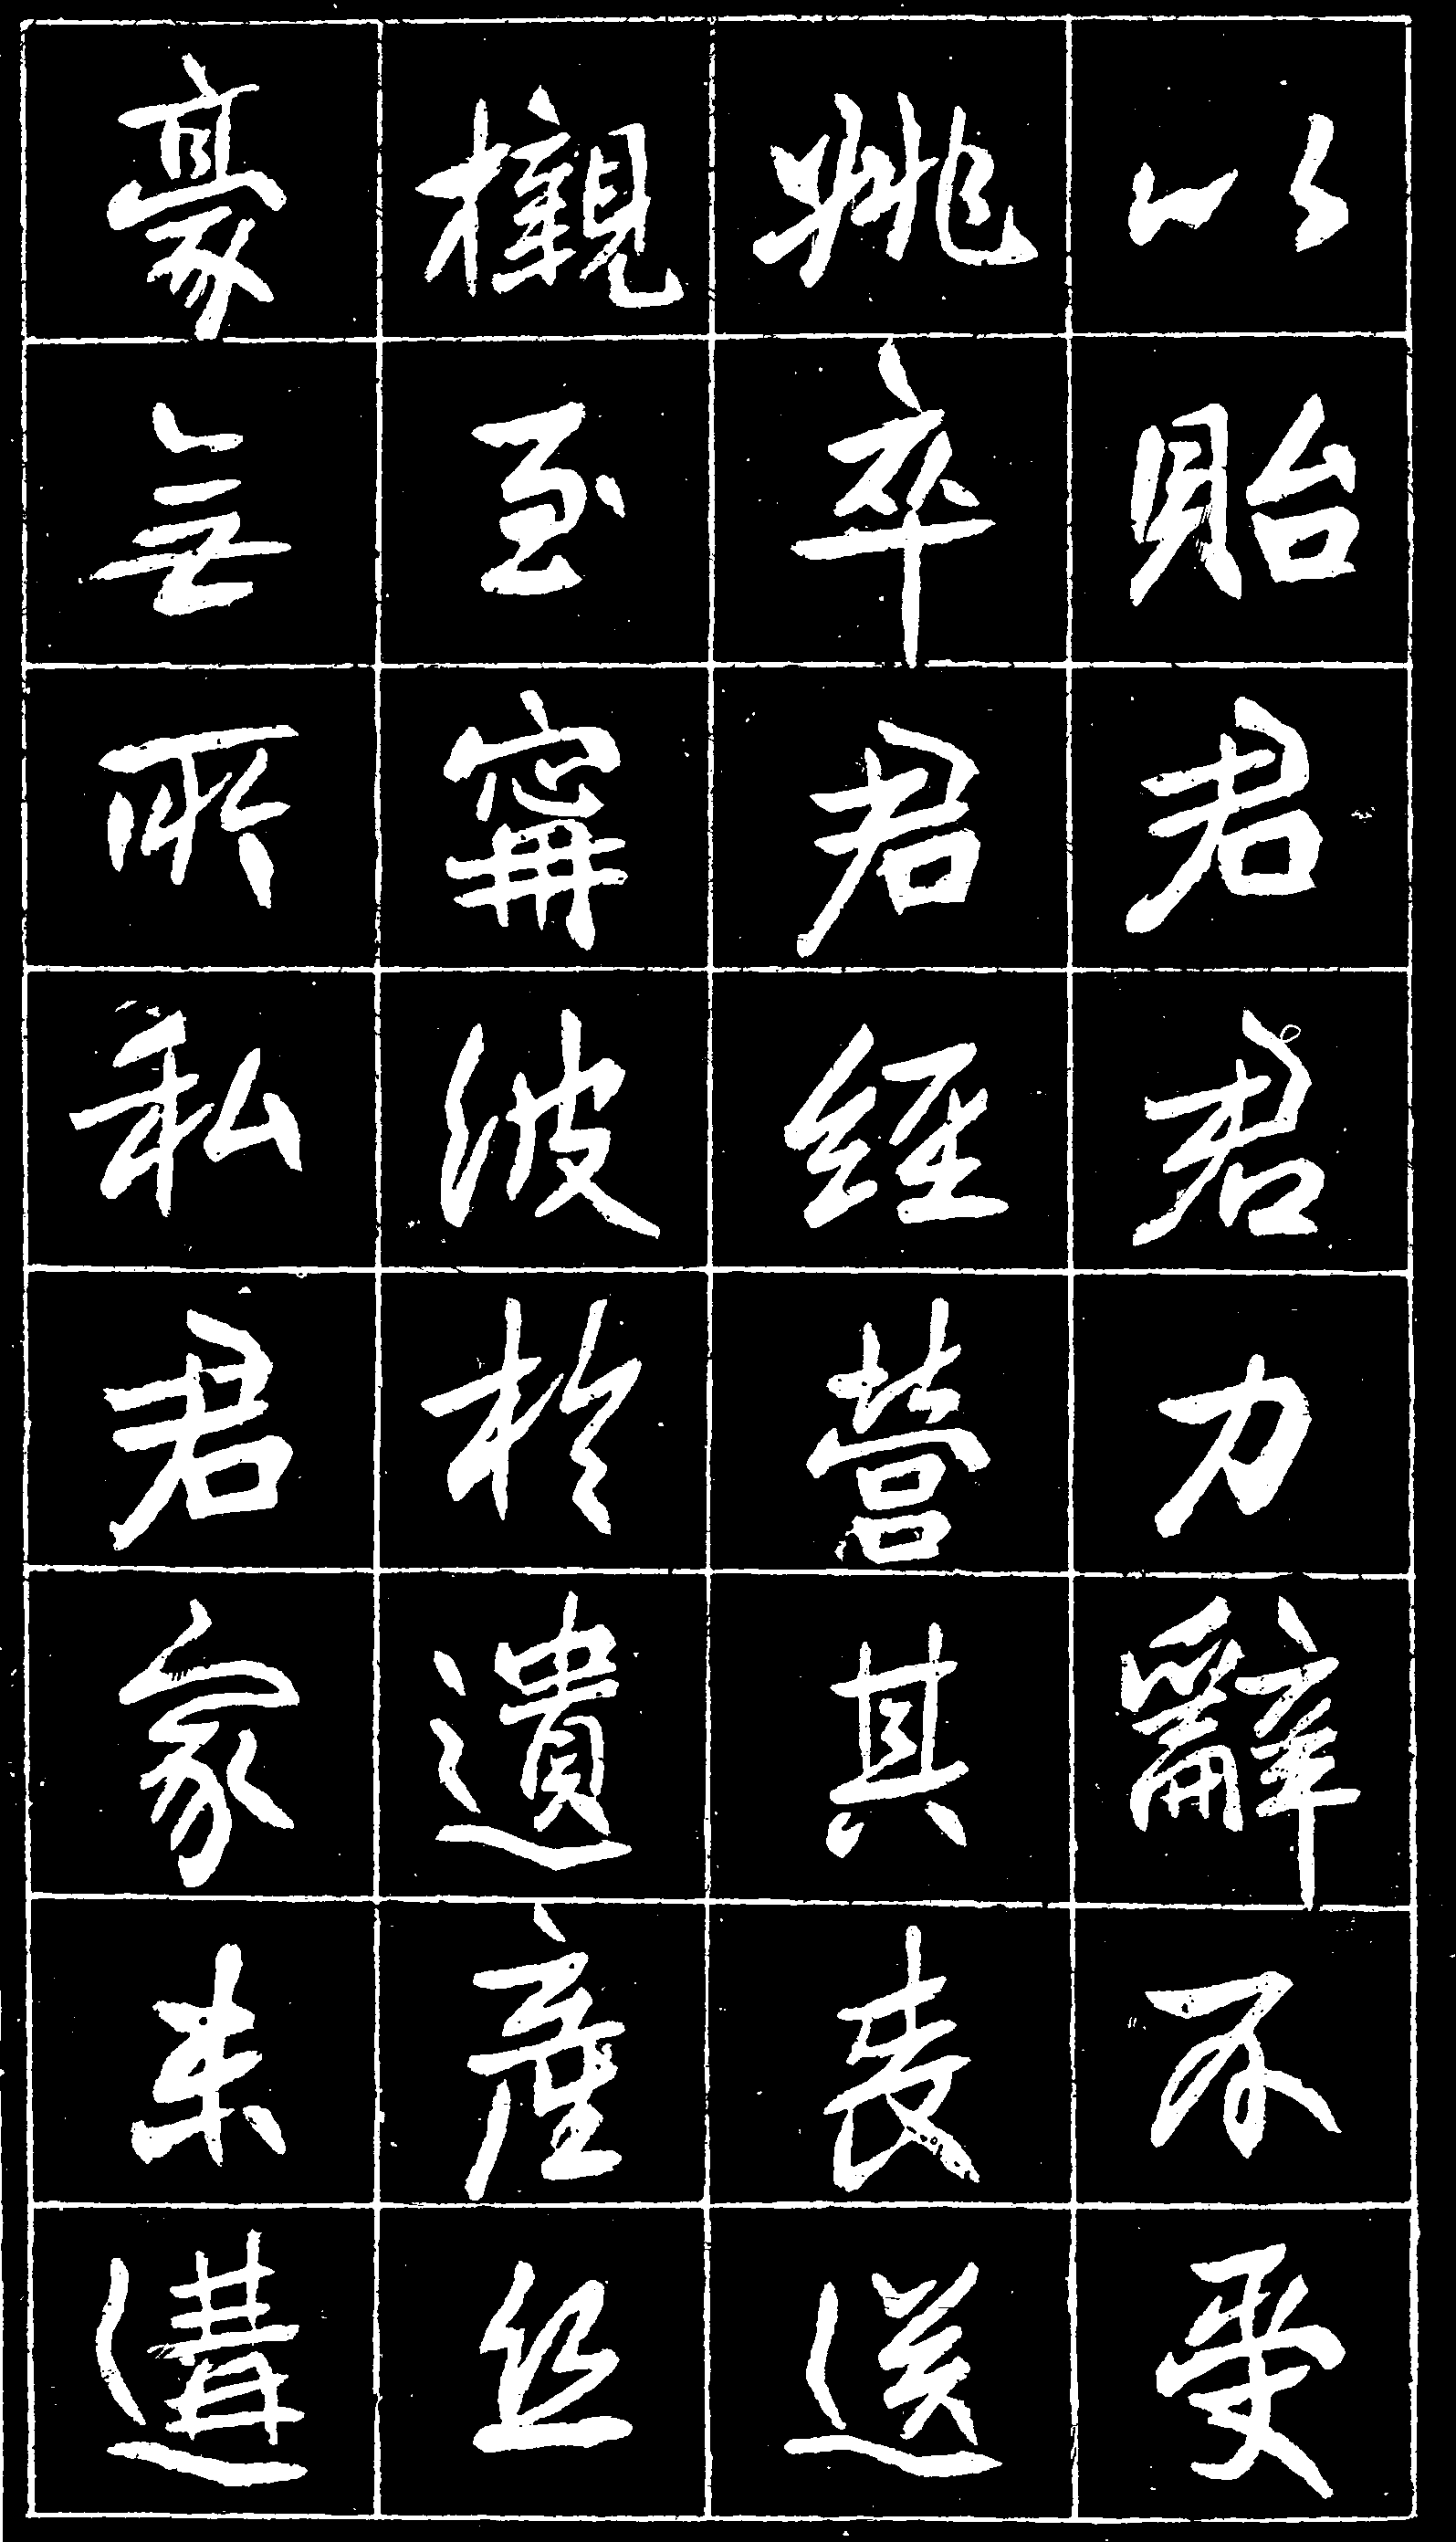 以貽君君力辭不受
姚卒君經營其喪送
櫬至甯波於遺產丝
豪無所私君家未遘